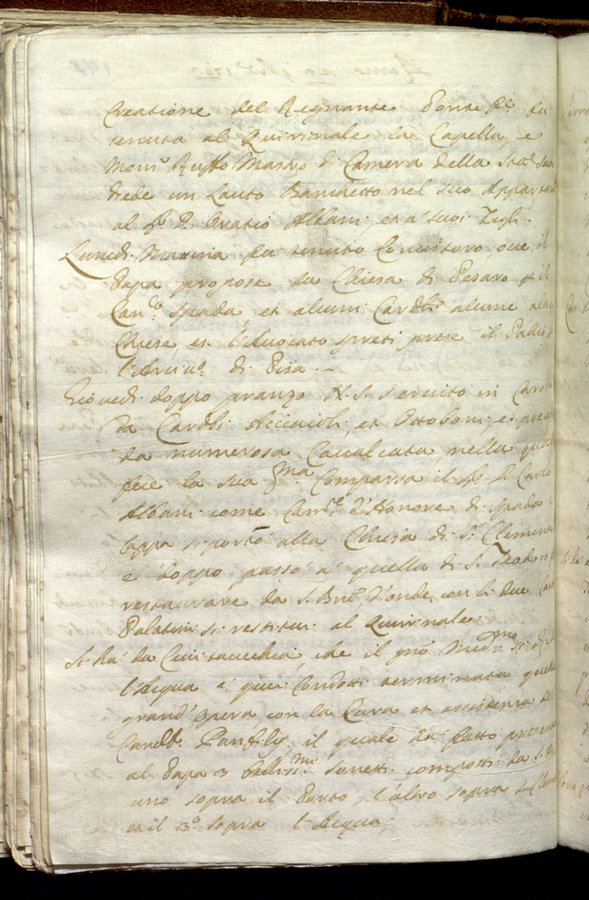 Creatione del Regnante Pontefce fu
tenuta al Quirinale la Capella, e
Monsr Ruffo Mastro di Camera della Stà Sua
diede un Lauto Banchetto nel suo Appartam
al Sr D. Oratio Albani et a' suoi Figli.
Lunedi Mattina fu tenuto Concistoro oue il
Papa propose la Chiesa di Pesaro et il
Carle Spada et alcuni Cardli alcune altre
Chiese et l'Auocato Spreti prese il Pallio p
l'Arciuo di Pisa.
Giouedi doppo pranzo N. S. seruito in Carozza
da Cardli Acciaioli, et Ottoboni e prece
da numerosa Caualcata nella quale
fece la sua pma Comparsa il Sr D. Carlo
Albani come Camre d'Honore di Spada e
Cappa si portò alla Chiesa di S. Clemente
e doppo passò a' quella di S. Teodoro
restaurare da S. Bne d'onde con li due Card
Palatini si restitui al Quirinale.
Si hà da Ciuitauecchia, che il gno Medmo si di
l'Acqua à quei Condotti terminata quella
grand'opera con la Cura et assistenza del
Cardle Panfilij il quale hà fatto presentare
al Papa 3 bellissmi sonetti composti da S. E.
uno sopra il Porto, l'altro sopra
et il 3o sopra l'Acqua.